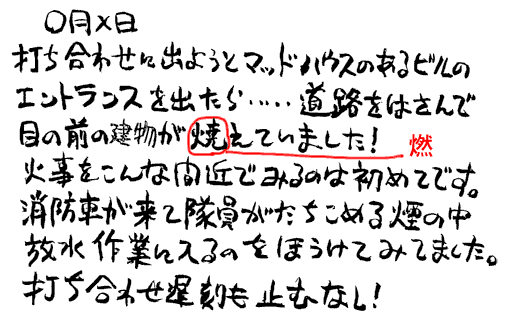 〇月×日
打ち合わせに出ようとマッドハウスのあるビルの
エントランスを出たら‥‥‥道路をはさんで
目の前の建物が焼えていました! 燃
火事をこんな間近でみるのは初めてです。
消防車が来て隊員がたちこめる煙の中
放水作業に入るのをほうけてみてました。
打ち合わせ遅刻も止むなし!